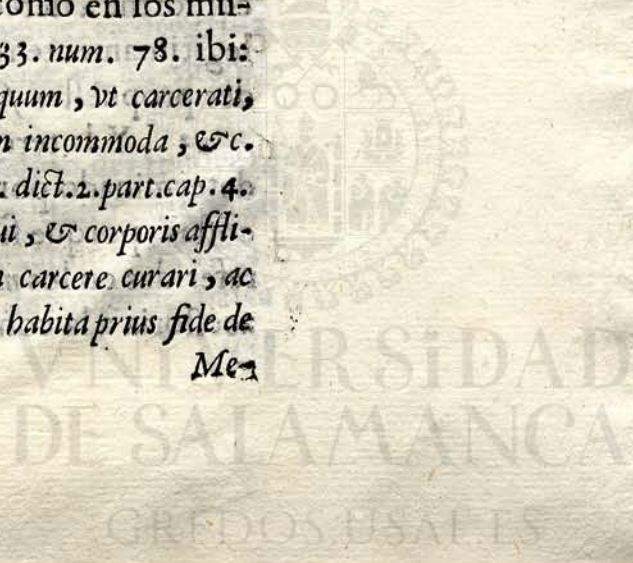 tonio en los mil-
33. num. 78. ibi:
quum, vt carcerati,
n incommoda, &c.
. dict.2.part.cap.4.
ui, & corporis affli-
n carcere curari, ac
habita prius fide de
Me-
VNIVERSiDAD
DE SALAMANCA
GREDOS.USAL.ES